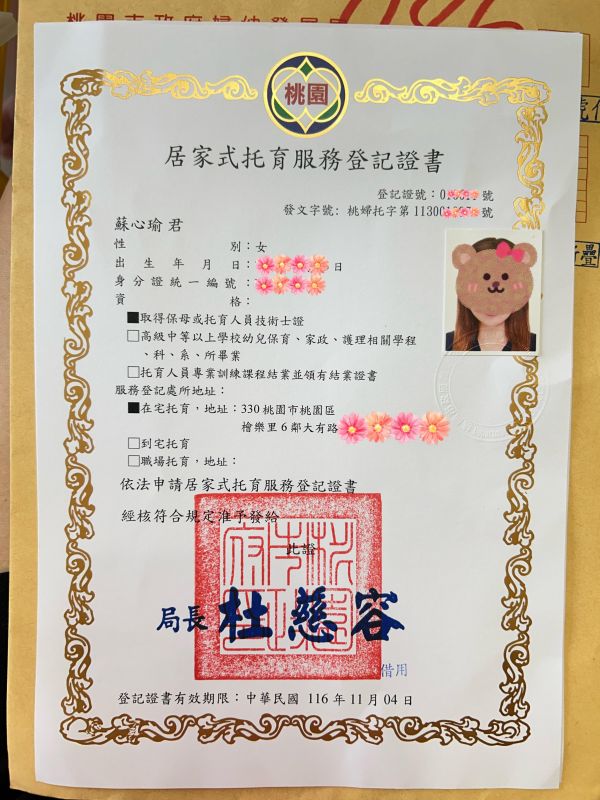 桃園市政府婦幼發展局
桃園
居家式托育服務登記證書
登記證號：0 號
發文字號：桃婦托字第 113001 號
蘇心瑜 君
性別：女
出生年月日： 日
身分證統一編號：
資格：
■取得保母或托育人員技術士證
□高級中等以上學校幼兒保育、家政、護理相關學程
、科、系、所畢業
□托育人員專業訓練課程結業並領有結業證書
服務登記處所地址：
■在宅托育，地址：330 桃園市桃園區
檜樂里 6 鄰大有路
□到宅托育
□職場托育，地址：
依法申請居家式托育服務登記證書
經核符合規定准予發給
此證
局長 杜慈容
借用
登記證書有效期限：中華民國 116 年 11 月 04 日